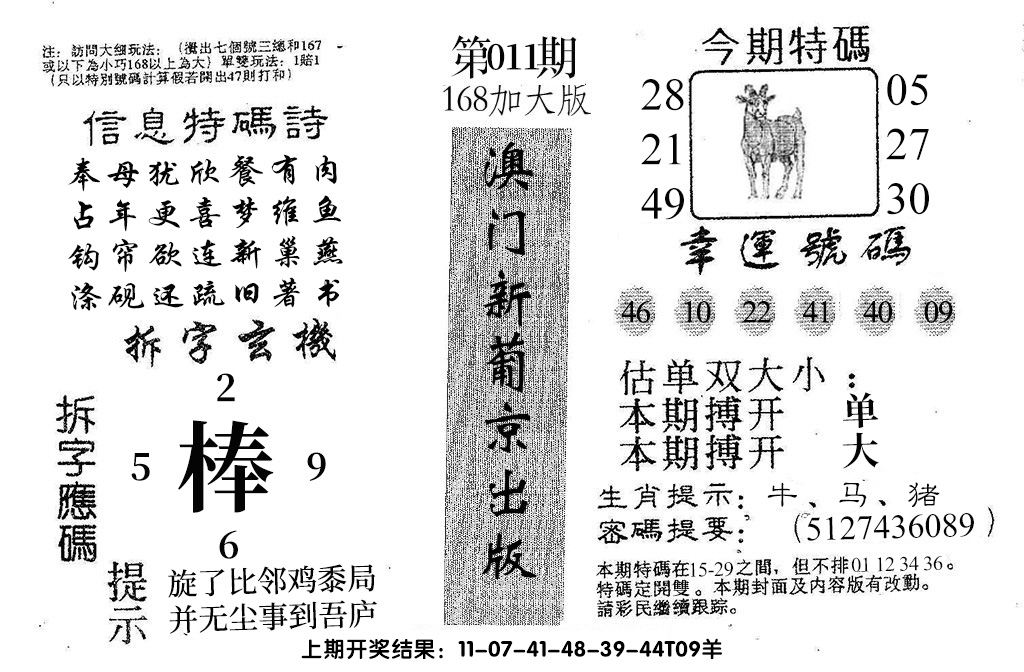 注：訪問大细玩法：（攪出七個號三總和167
或以下為小巧168以上為大）單雙玩法：1賠1
（只以特別號碼計算假若開出47則打和）
信息特碼詩
奉母犹欣餐有肉
占年更喜梦维鱼
钩帘欲连新巢燕
涤砚还疏旧著书
拆字玄機
拆字應碼
2
5 棒 9
6
提示
旋了比邻鸡黍局
并无尘事到吾庐
第011期
168加大版
澳门新葡京出版
今期特碼
28 05
21 27
49 30
幸運號碼
46 10 22 41 40 09
估单双大小：
本期搏开 单
本期搏开 大
生肖提示：牛、马、猪
密碼提要：（5127436089）
本期特碼在15-29之間，但不排01 12 34 36。
特碼定開雙。本期封面及内容版有改動。
請彩民繼续跟踪。
上期开奖结果：11-07-41-48-39-44T09羊